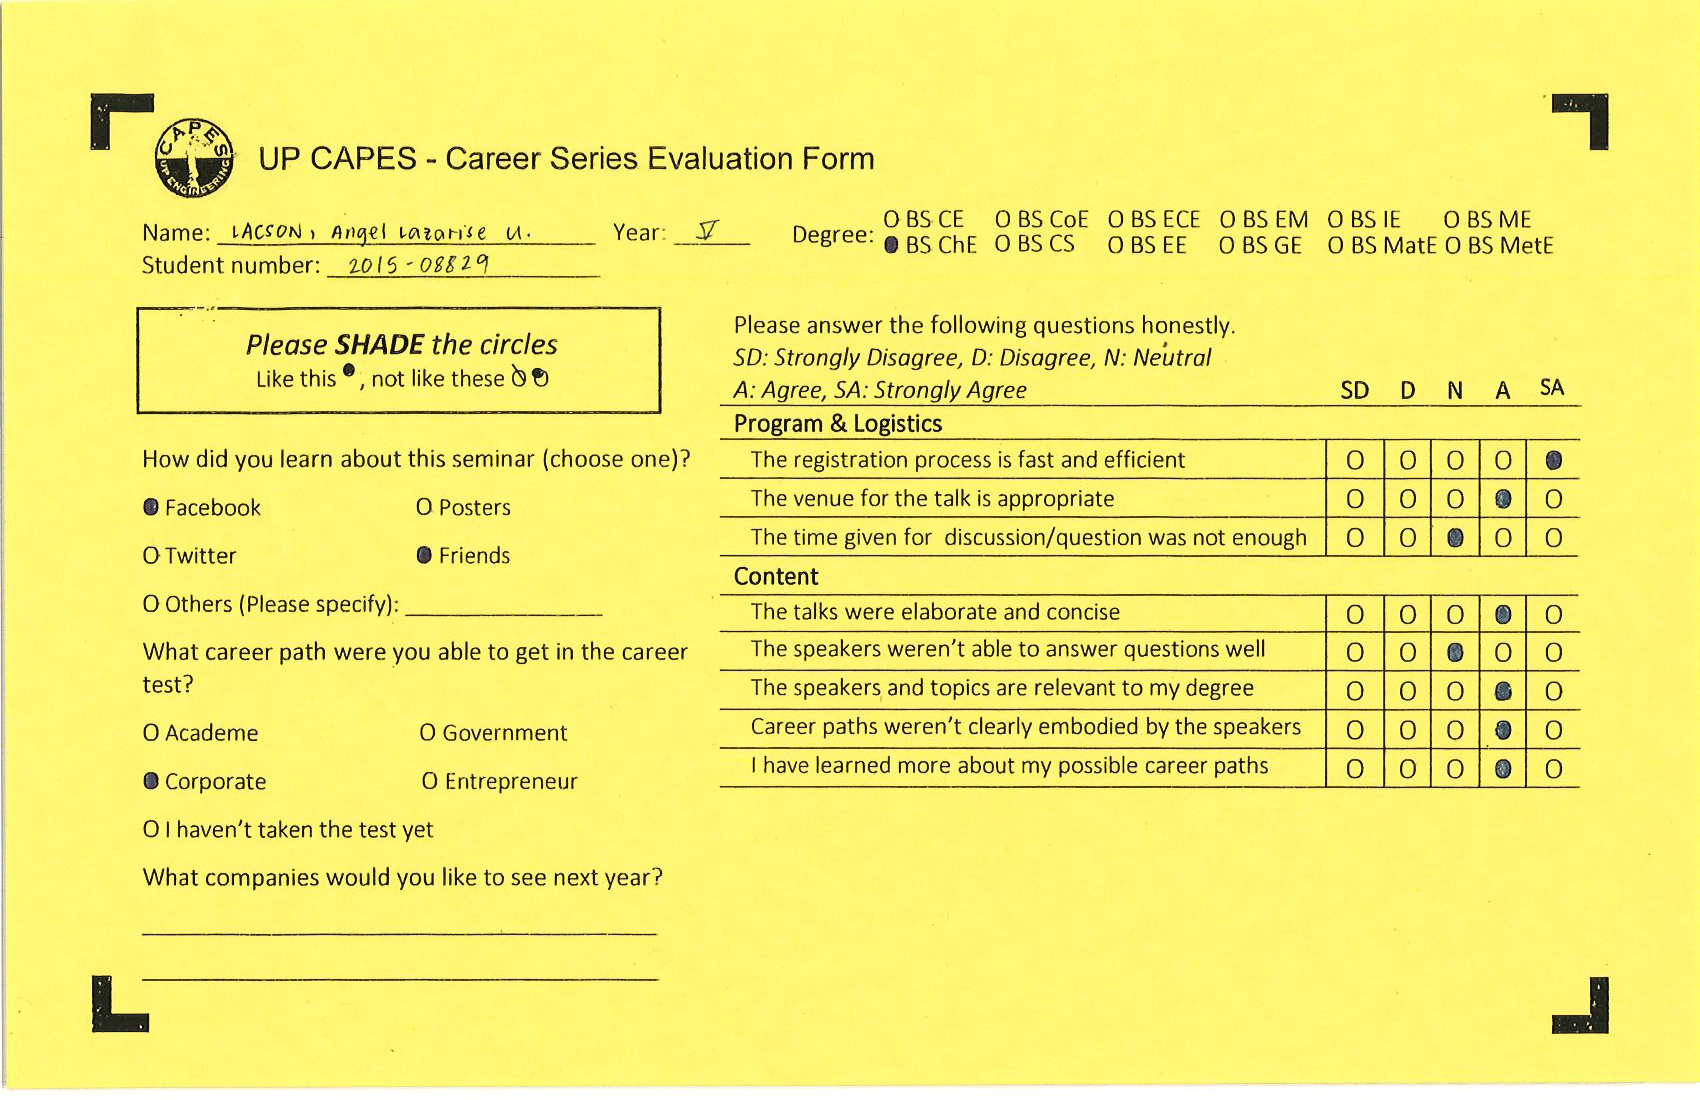 CAPES
UP ENGINEERING
UP CAPES - Career Series Evaluation Form
Name: LACSON, Angel Lazarise U. Year: V
Student number: 2015-08829
Degree: O BS CE O BS CoE O BS ECE O BS EM O BS IE O BS ME
● BS ChE O BS CS O BS EE O BS GE O BS MatE O BS MetE
Please SHADE the circles
Like this ●, not like these
How did you learn about this seminar (choose one)?
● Facebook O Posters
O Twitter ● Friends
O Others (Please specify):
What career path were you able to get in the career
test?
O Academe O Government
● Corporate O Entrepreneur
O I haven't taken the test yet
What companies would you like to see next year?
Please answer the following questions honestly.
SD: Strongly Disagree, D: Disagree, N: Neutral
A: Agree, SA: Strongly Agree SD D N A SA
Program & Logistics
The registration process is fast and efficient O O O O ●
The venue for the talk is appropriate O O O ● O
The time given for discussion/question was not enough O O ● O O
Content
The talks were elaborate and concise O O O ● O
The speakers weren't able to answer questions well O O ● O O
The speakers and topics are relevant to my degree O O O ● O
Career paths weren't clearly embodied by the speakers O O O ● O
I have learned more about my possible career paths O O O ● O